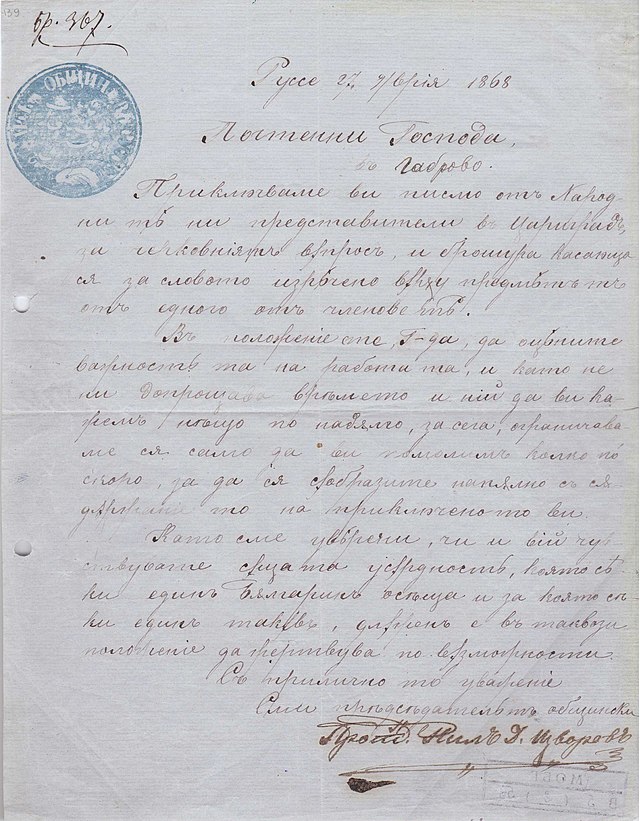 бр. 367.
Руссе 27 Февріа 1868
Почтенни Господа,
въ Габрово.
Приключваме ви писмо отъ Народ-
ни тѣ ни представители въ Цариградъ,
за черковніятъ вѫпросъ, и брошура касающа
ся за словото изрѣчено вѫрху предмѣтъ тъ
отъ едного отъ членове тѣ.
Въ положеніе сте, Г-да, да оцѣните
важность та на работа та, и като не
ни допрощава врѣмето и ній да ви ка-
жемъ нѣщо по надѫлго, за сега, ограничава
ме ся само да ви помолимъ колко по
скоро, за да ся сѫобразите напѫлно съ сѫ-
дѫржаніе то на приключеното ви.
Като сме увѣрени, чи и вій чув-
ствувате сѫща та усердность, която сѣ-
ки единъ Бѫлгаринъ осѣща и за която сѣ-
ки единъ такѫвъ, длѫженъ е въ таквози
положеніе да жертвува по вѫзможности.
Съ прилично то уваженіе
предсѣдательтъ общински
Д. Изворовъ